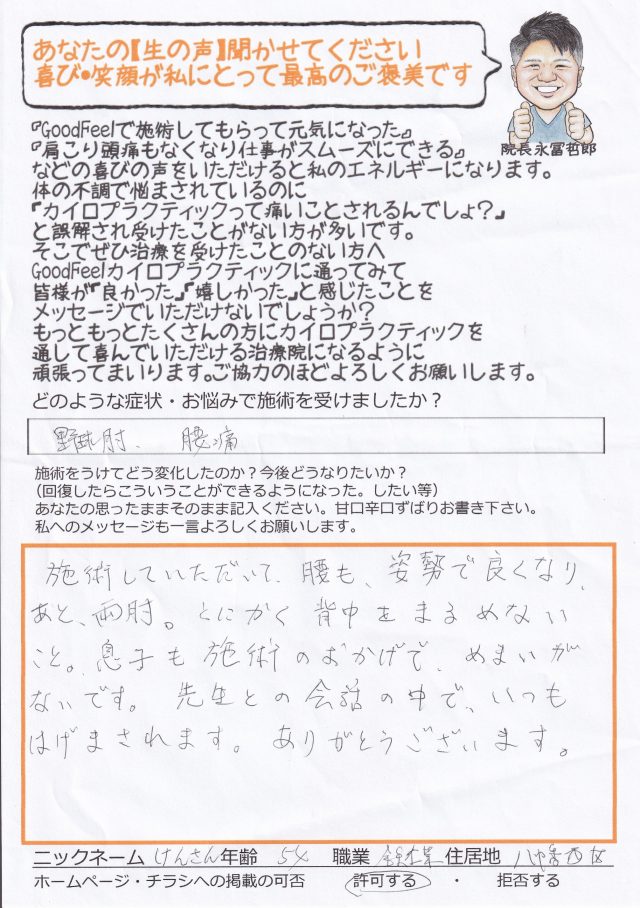 あなたの【生の声】聞かせてください
喜び・笑顔が私にとって最高のご褒美です
院長永冨哲郎
『GoodFeelで施術してもらって元気になった』
『肩こり頭痛もなくなり仕事がスムーズにできる』
などの喜びの声をいただけると私のエネルギーになります。
体の不調で悩まされているのに
「カイロプラクティックって痛いことされるんでしょ?」
と誤解され受けたことがない方が多いです。
そこでぜひ治療を受けたことのない方へ
GoodFeelカイロプラクティックに通ってみて
皆様が「良かった」「嬉しかった」と感じたことを
メッセージでいただけないでしょうか?
もっともっとたくさんの方にカイロプラクティックを
通して喜んでいただける治療院になるように
頑張ってまいります。ご協力のほどよろしくお願いします。
どのような症状・お悩みで施術を受けましたか?
野球肘、腰痛
施術をうけてどう変化したのか?今後どうなりたいか?
(回復したらこういうことができるようになった。したい等)
あなたの思ったままそのまま記入ください。甘口辛口ずばりお書き下さい。
私へのメッセージも一言よろしくお願いします。
施術していただいて、腰も、姿勢で良くなり、
あと、両肘。とにかく背中をまるめない
こと。息子も施術のおかげで、めまいが
ないです。先生との会話の中で、いつも
はげまされます。ありがとうございます。
ニックネーム けんさん 年齢 54 職業 住居地 八幡西区
ホームページ・チラシへの掲載の可否 許可する ・ 拒否する